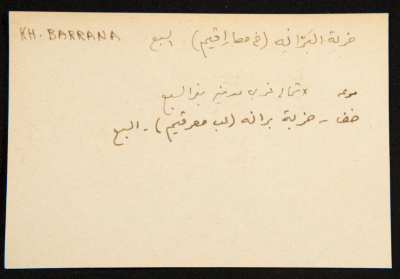 KH. BARRANA خربة البَرّانه (في مصاراقيم) السبع
موعه × شمال غرب مدينة بئر السبع
خف - خربة برانه (لب معرقيم) - السبع